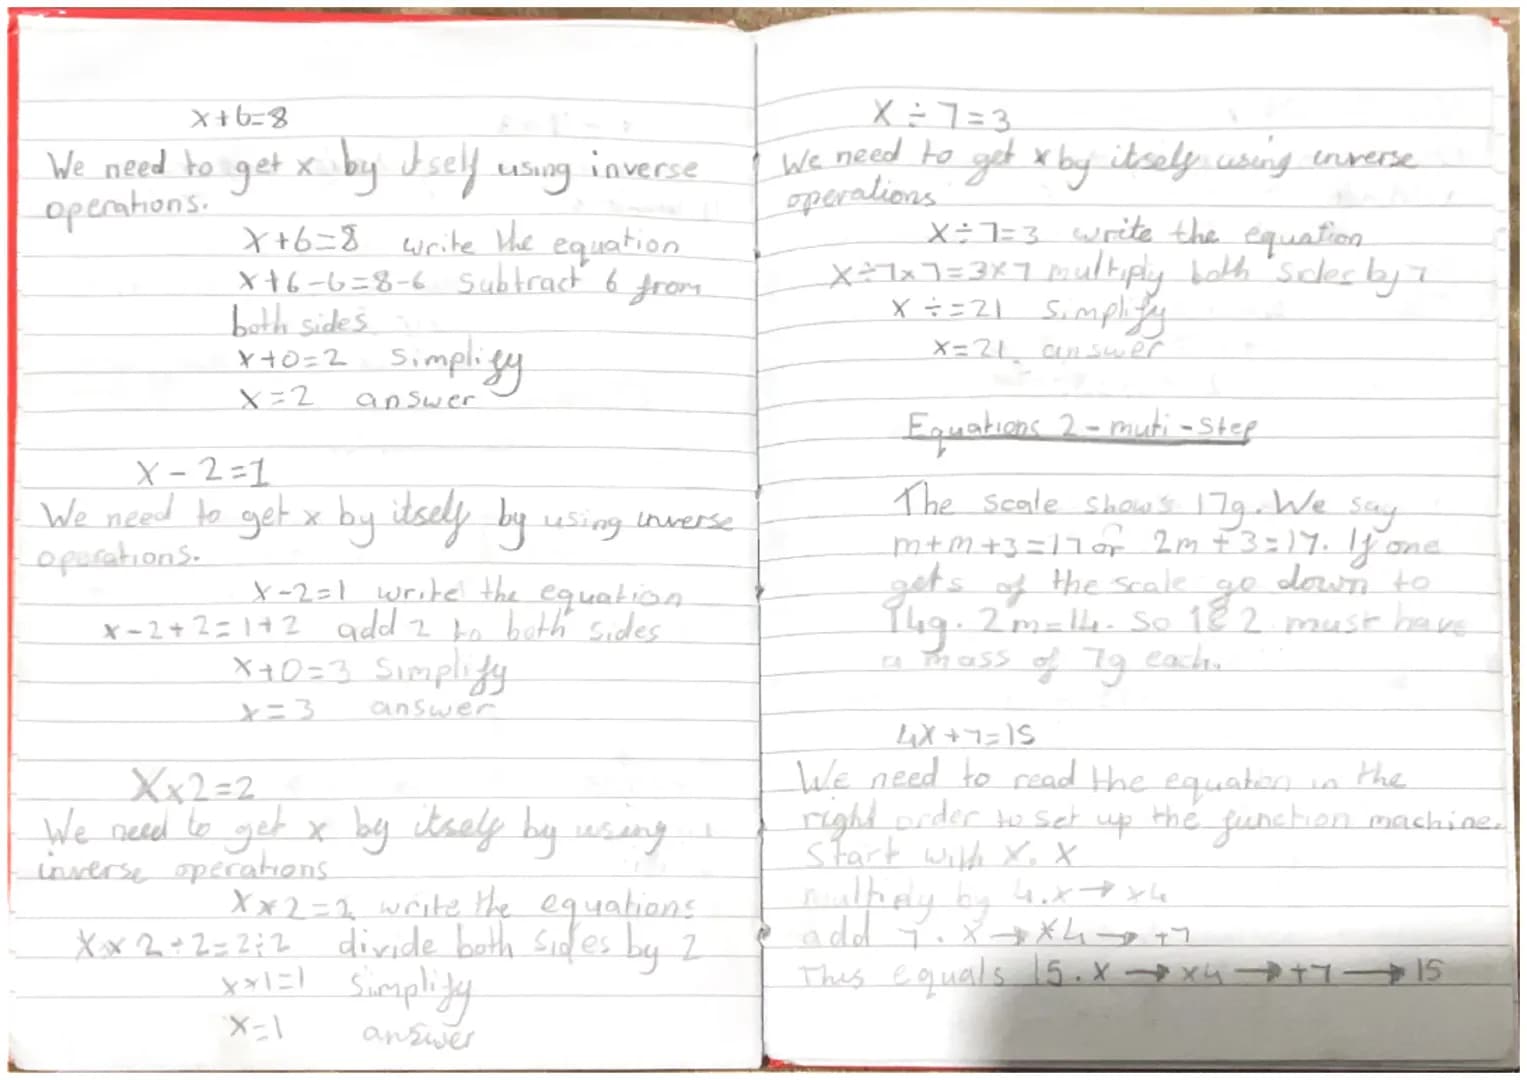 x+6=8
We need to get x by itself using inverse
operations.
x+6=8 write the equation
x+6-6=8-6 subtract 6 from
both sides
x+0=2 simplify
x=2 answer
x-2=1
We need to get x by itself by using inverse
operations.
x-2=1 write the equation
x-2+2=1+2 add 2 to both sides
x+0=3 simplify
x=3 answer
X×2=2
We need to get x by itself by using
inverse operations
X×2=2 write the equations
X×2÷2=2÷2 divide both sides by 2
x×1=1 simplify
x=1 answer
X÷7=3
We need to get x by itself using inverse
operations
x÷7=3 write the equation
x÷7×7=3×7 multiply both sides by 7
x÷=21 simplify
x=21 answer
Equations 2-muti-step
The scale shows 17g. We say
m+m+3=17 or 2m+3=17. If one
gets of the scale go down to
14g. 2m=14. So 1&2 must have
a mass of 7g each.
4X+7=15
We need to read the equation in the
right order to set up the function machine.
Start with X. X
multiply by 4. x→×4
add 7. X→×4→+7
This equals 15. x→×4→+7→15